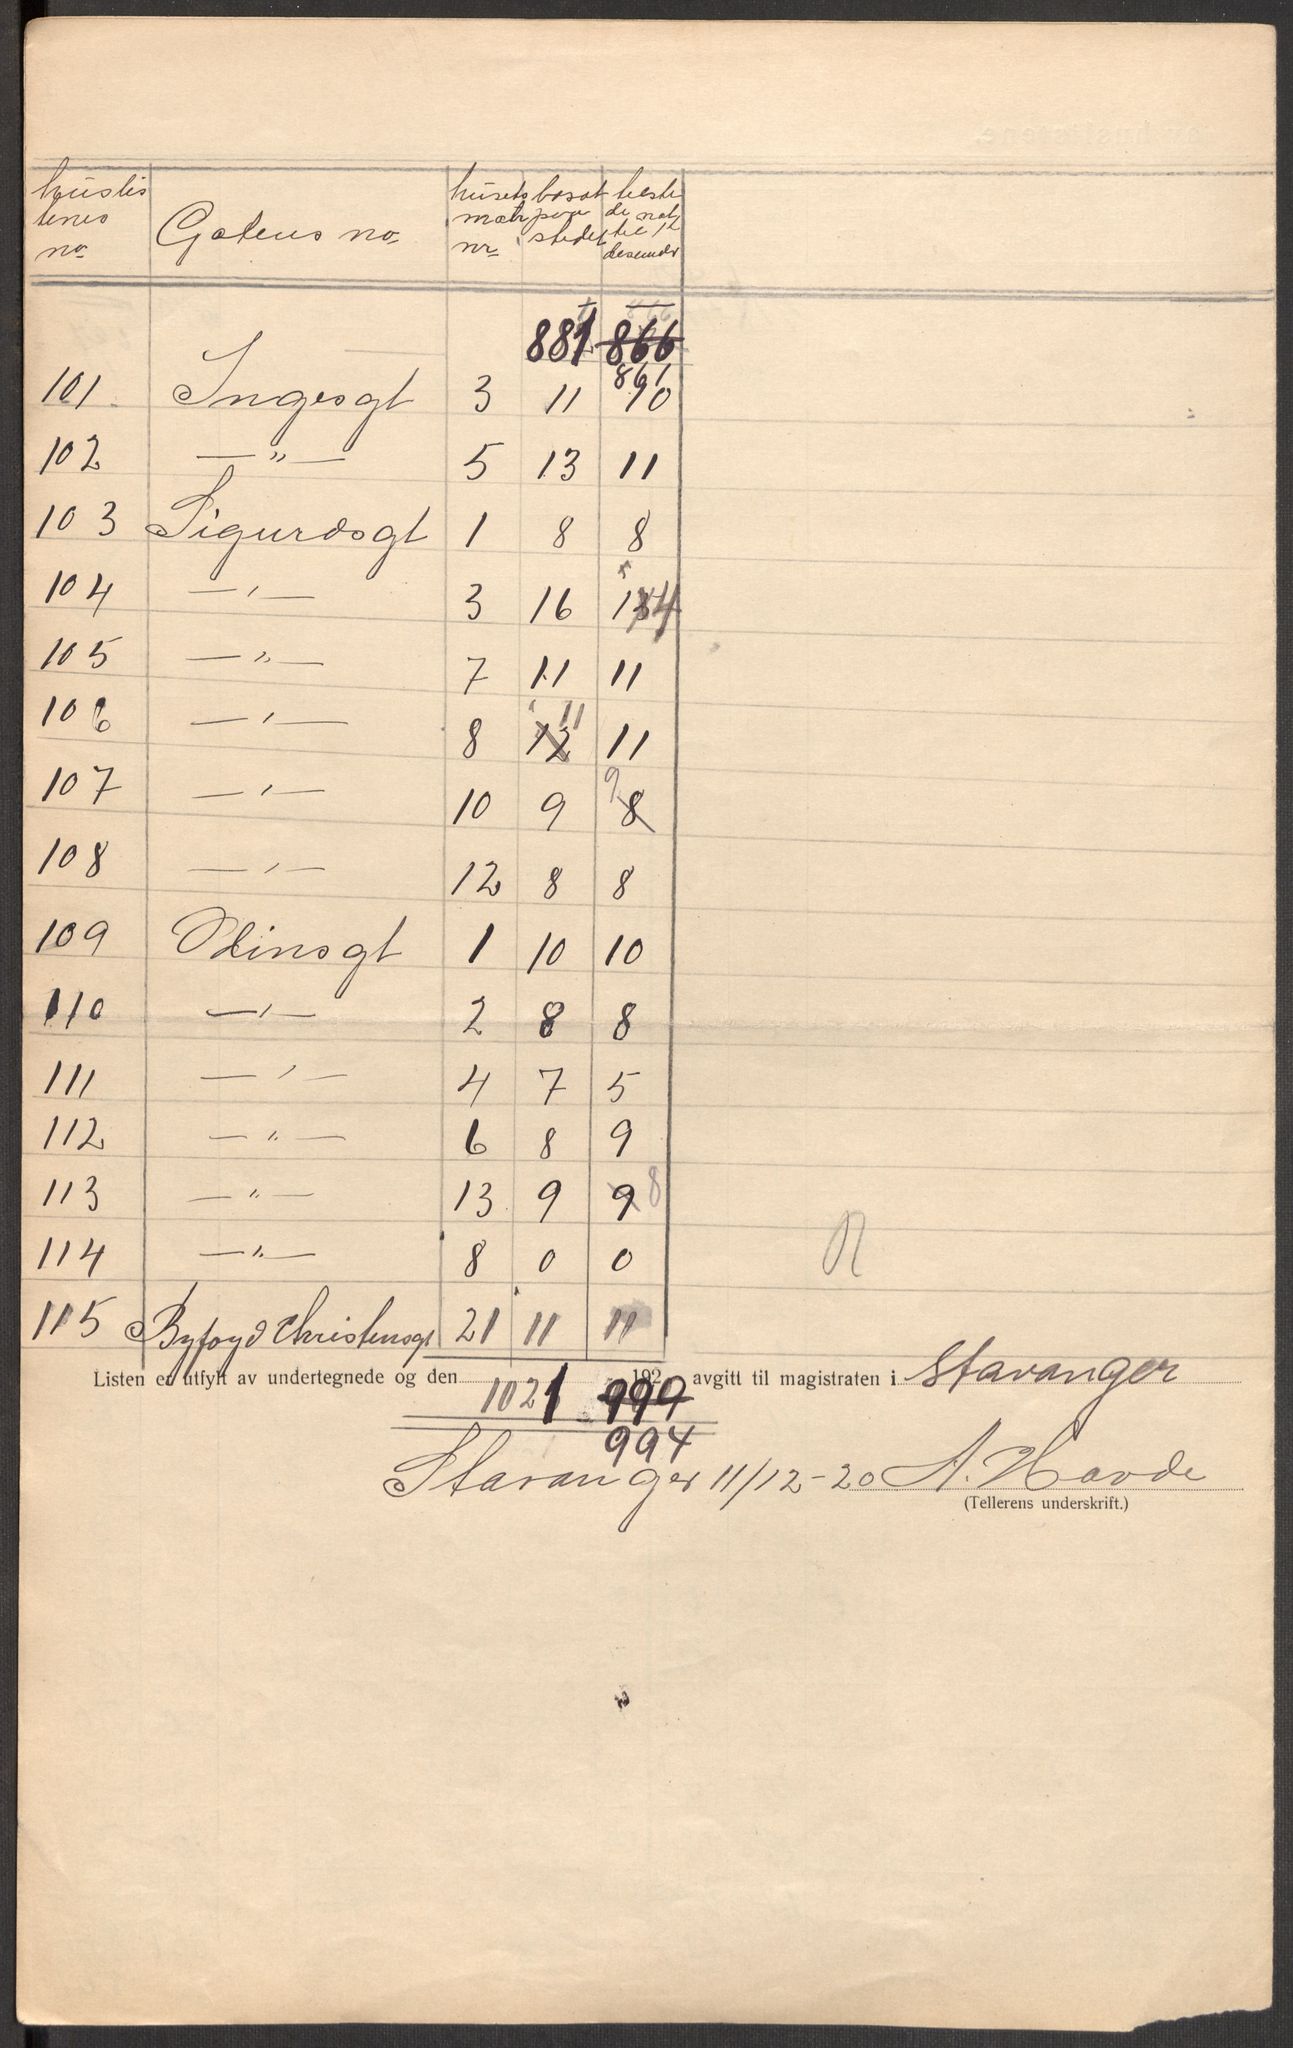 huslis tenes no. Gatens no. husets matr nr. bosat paa stedet
881 866
861
101 Ingesgt 3 11 10
102 — " — 5 13 11
103 Sigurdsgt 1 8 8
104 — " — 3 16 14
105 — " — 7 11 11
106 — " — 8 12 11 11
107 — " — 10 9 9 8
108 — " — 12 8 8
109 Odinsgt 1 10 10
110 — " — 2 8 8
111 — " — 4 7 5
112 — " — 6 8 9
113 — " — 13 9 9 8
114 — " — 8 0 0
115 Byfogd Christensgt 21 11 11
Listen er utfylt av undertegnede og den 192 avgitt til magistraten i Stavanger
1021 999
994
Stavanger 11/12-20 A. Havde
(Tellerens underskrift.)